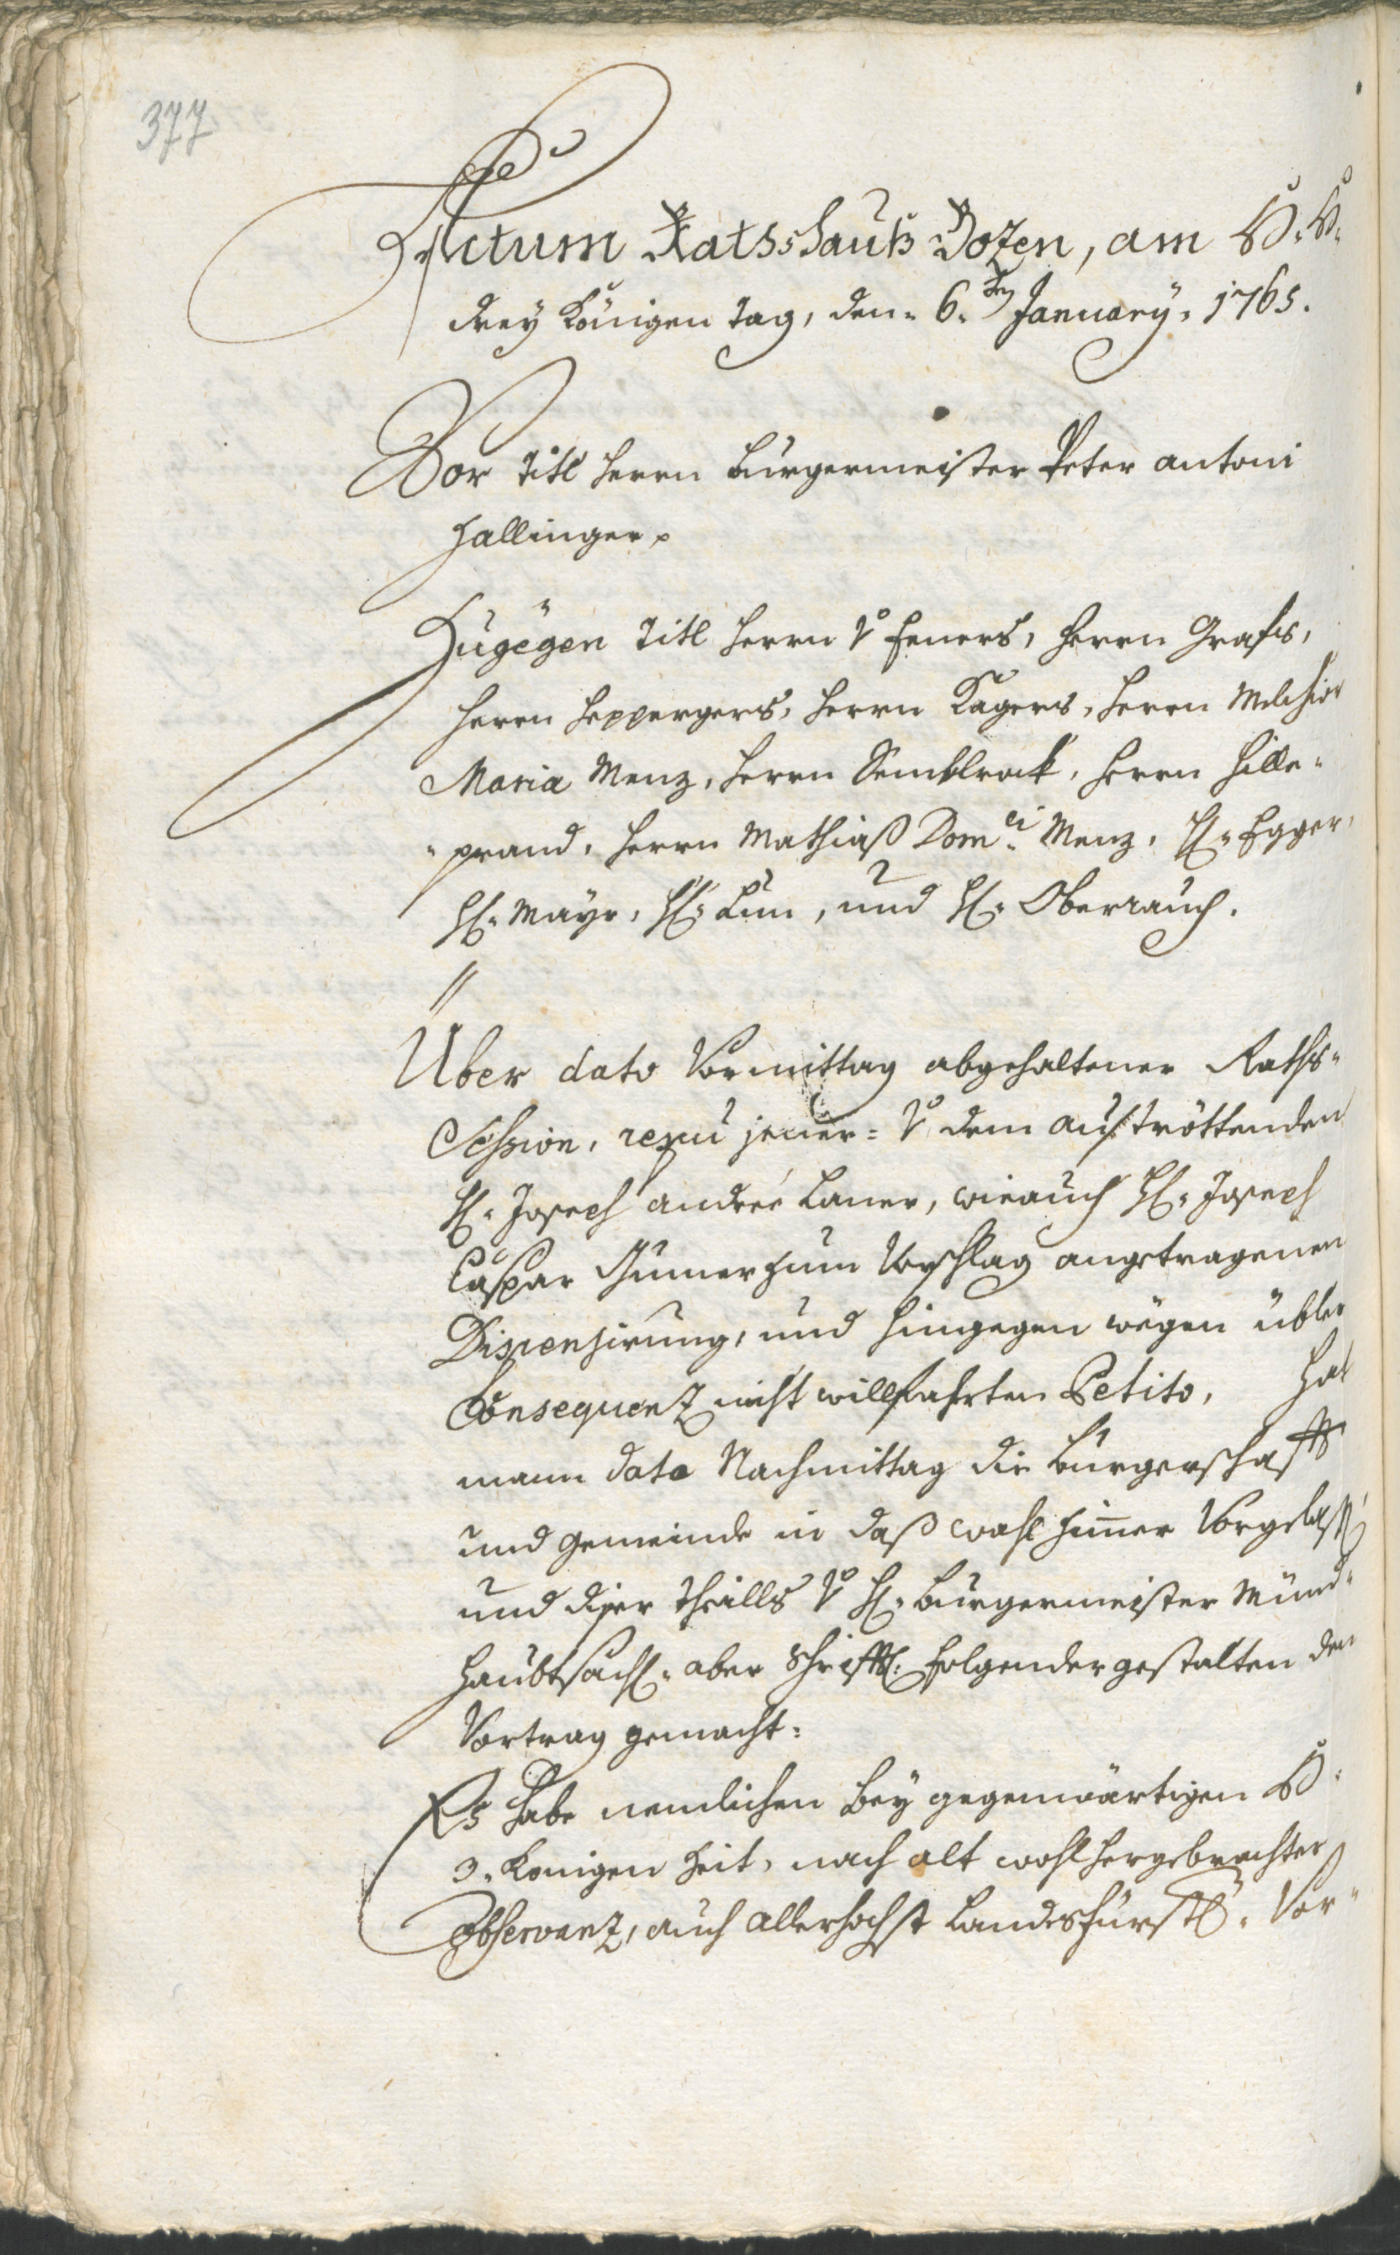 377
Actum Ratshauß Bozen, am H. H.
drey Königen tag, den 6.ten January. 1765.
Vor titl herrn Burgermeister Peter antoni
Hallinger.
Zugegen titl herrn v. Feners, herrn Grafis,
herrn Heppergers, herrn Kagers, herrn Melchior
Maria Menz, herrn Semblrock, herrn Hille-
-prand, herrn Mathiaß Dom:ci Menz, H. Egger,
H. Mayr, H. Lun, und H. Oberrauch.
//
Über dato Vormittag abgehaltener Raths-
Session, respectu jener- v. dem auftröttenden
H. Joseph andreé Laner, wieauch H. Joseph
Caspar Gumer zum Vorschlag angetragenen
Dispensirung, und hingegen wögen übler
Consequenz nicht willfahrten Petito, hat
mann dato Nachmittag die Burgerschafft
und Gemeinde in daß wahl zimer Vorgelasst,
und diser theills v. H. Burgermeister Münd-
haubtsächl. aber schrifftl. folgendergestalten den
Vortrag gemacht:
Es habe nemlichen bey gegenwärtigen H.
3. Königen Zeit, nach alt wohlhergebrachter
Observanz, auch allerhochst Landesfürstl. Ver-